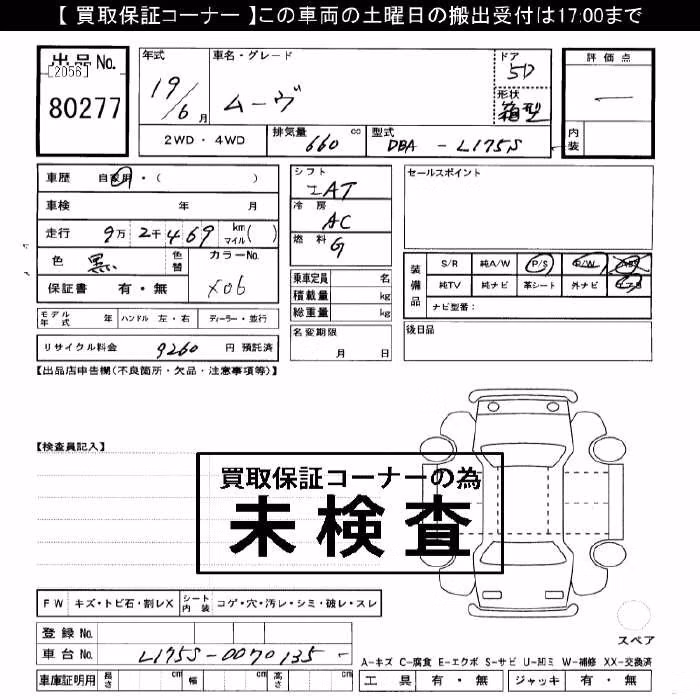 【 買取保証コーナー 】この車両の土曜日の搬出受付は17:00まで
出品No.
[2056]
80277
年式
19/6 月
車名・グレード
ムーヴ
ドア
5D
形状
箱型
評価点
―
内装
2WD ・ 4WD
排気量 660 cc
型式 DBA - L175S
車歴 自家用・( )
車検 年 月
走行 9万 2千 4 6 9 km マイル ( )
色 黒 色替
カラーNo.
X06
保証書 有・無
シフト
IAT
冷房
AC
燃料
G
乗車定員 名
積載量 kg
総重量 kg
セールスポイント
装備品
S/R 純A/W P/S P/W ABS
純TV 純ナビ 革シート 外ナビ エアB
ナビ型番:
モデル年式 年 ハンドル 左・右 ディーラー・並行
名変期限
月 日
後日品
リサイクル料金 9260 円 預託済
【出品店申告欄(不良箇所・欠品・注意事項等)】
【検査員記入】
買取保証コーナーの為
未検査
FW キズ・トビ石・割レX シート内装 コゲ・穴・汚レ・シミ・破レ・スレ
スペア
登録No.
車台No. L175S-0070135 -
A-キズ C-腐食 E-エクボ S-サビ U-凹ミ W-補修 XX-交換済
車庫証明用 長さ cm 幅 cm 高さ cm
工具 有・無 ジャッキ 有・無